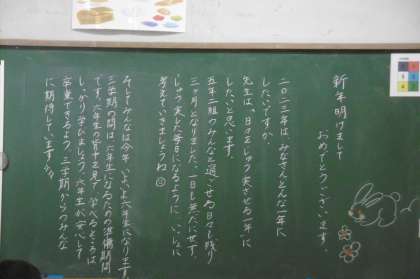 新年明けまして
おめでとうございます。
二〇二三年は、みなさんどんな一年に
したいですか。
先生は、日々をじゅう実させる一年に
したいと思います。
五年二組のみんなと過ごせる日々も残り
三ヶ月となりました。一日も無だにせず、
じゅう実した毎日になるように、いっしょに
考えていきましょうね
そしてみんなは今年、いよいよ六年生になります。
三学期の間は六年生になるための準備期間
です。六年生の背中を見て、学べるところは
しっかり学びましょう。六年生が安心して
卒業できるよう、三学期からのみんな
に期待しています!!